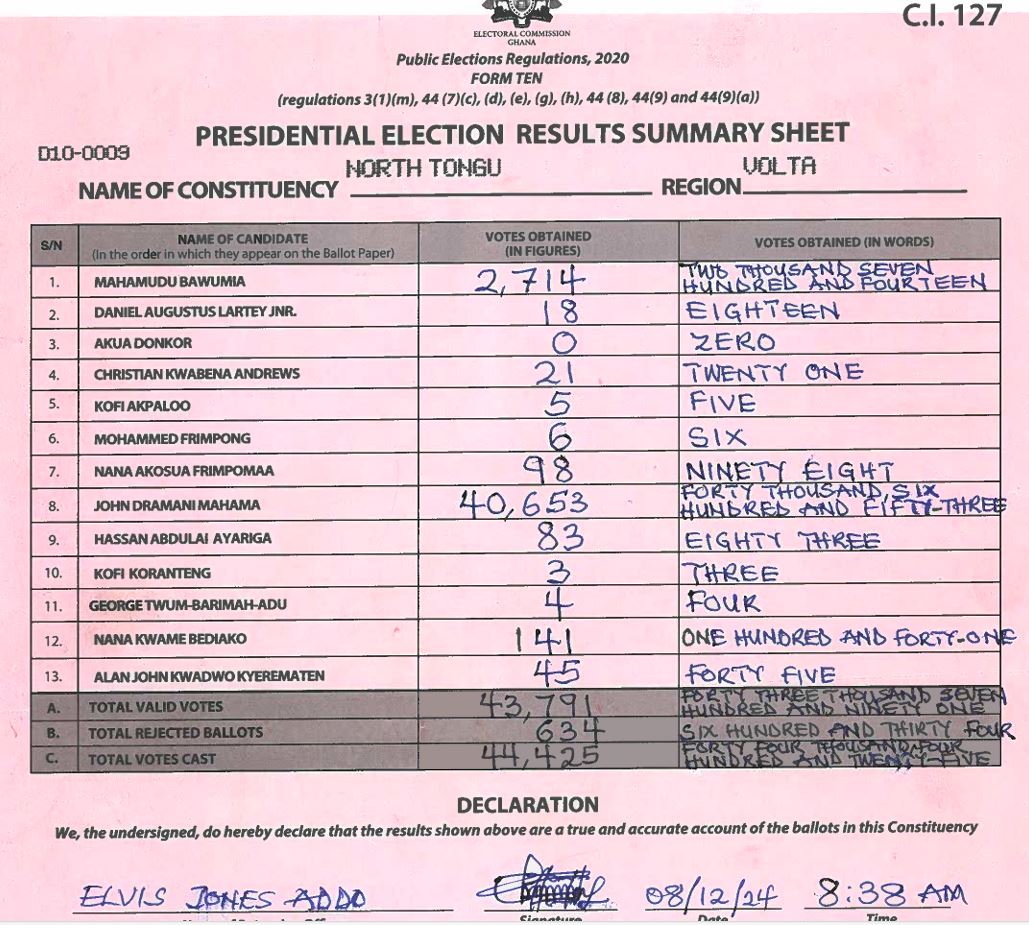 C.I. 127
ELECTORAL COMMISSION
GHANA
Public Elections Regulations, 2020
FORM TEN
(regulations 3(1)(m), 44 (7)(c), (d), (e), (g), (h), 44 (8), 44(9) and 44(9)(a))
PRESIDENTIAL ELECTION RESULTS SUMMARY SHEET
D10-0009
NAME OF CONSTITUENCY NORTH TONGU REGION VOLTA
S/N NAME OF CANDIDATE (In the order in which they appear on the Ballot Paper) VOTES OBTAINED (IN FIGURES) VOTES OBTAINED (IN WORDS)
1. MAHAMUDU BAWUMIA 2,714 TWO THOUSAND SEVEN HUNDRED AND FOURTEEN
2. DANIEL AUGUSTUS LARTEY JNR. 18 EIGHTEEN
3. AKUA DONKOR 0 ZERO
4. CHRISTIAN KWABENA ANDREWS 21 TWENTY ONE
5. KOFI AKPALOO 5 FIVE
6. MOHAMMED FRIMPONG 6 SIX
7. NANA AKOSUA FRIMPOMAA 98 NINETY EIGHT
8. JOHN DRAMANI MAHAMA 40,653 FORTY THOUSAND, SIX HUNDRED AND FIFTY-THREE
9. HASSAN ABDULAI AYARIGA 83 EIGHTY THREE
10. KOFI KORANTENG 3 THREE
11. GEORGE TWUM-BARIMAH-ADU 4 FOUR
12. NANA KWAME BEDIAKO 141 ONE HUNDRED AND FORTY-ONE
13. ALAN JOHN KWADWO KYEREMATEN 45 FORTY FIVE
A. TOTAL VALID VOTES 43,791 FORTY THREE THOUSAND SEVEN HUNDRED AND NINETY ONE
B. TOTAL REJECTED BALLOTS 634 SIX HUNDRED AND THIRTY FOUR
C. TOTAL VOTES CAST 44,425 FORTY FOUR THOUSAND, FOUR HUNDRED AND TWENTY-FIVE
DECLARATION
We, the undersigned, do hereby declare that the results shown above are a true and accurate account of the ballots in this Constituency
ELVIS JONES ADDO 08/12/24 8:38 AM
Signature Date Time